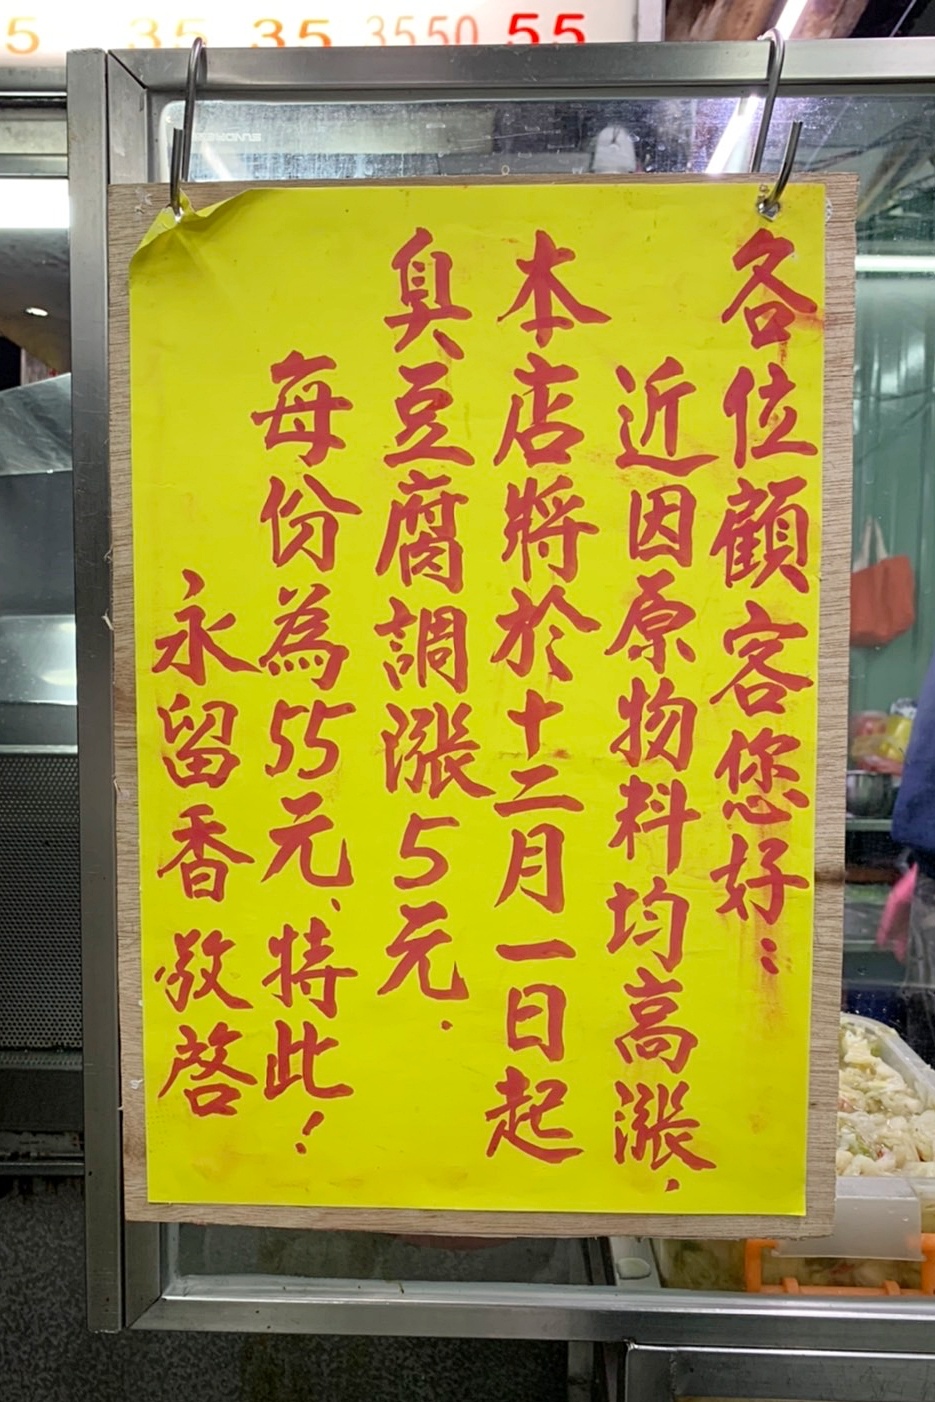 5 35 35 35 50 55
各位顧客您好：
近因原物料均高漲，
本店將於十二月一日起
臭豆腐調漲5元．
每份為55元、特此！
永留香敬啓